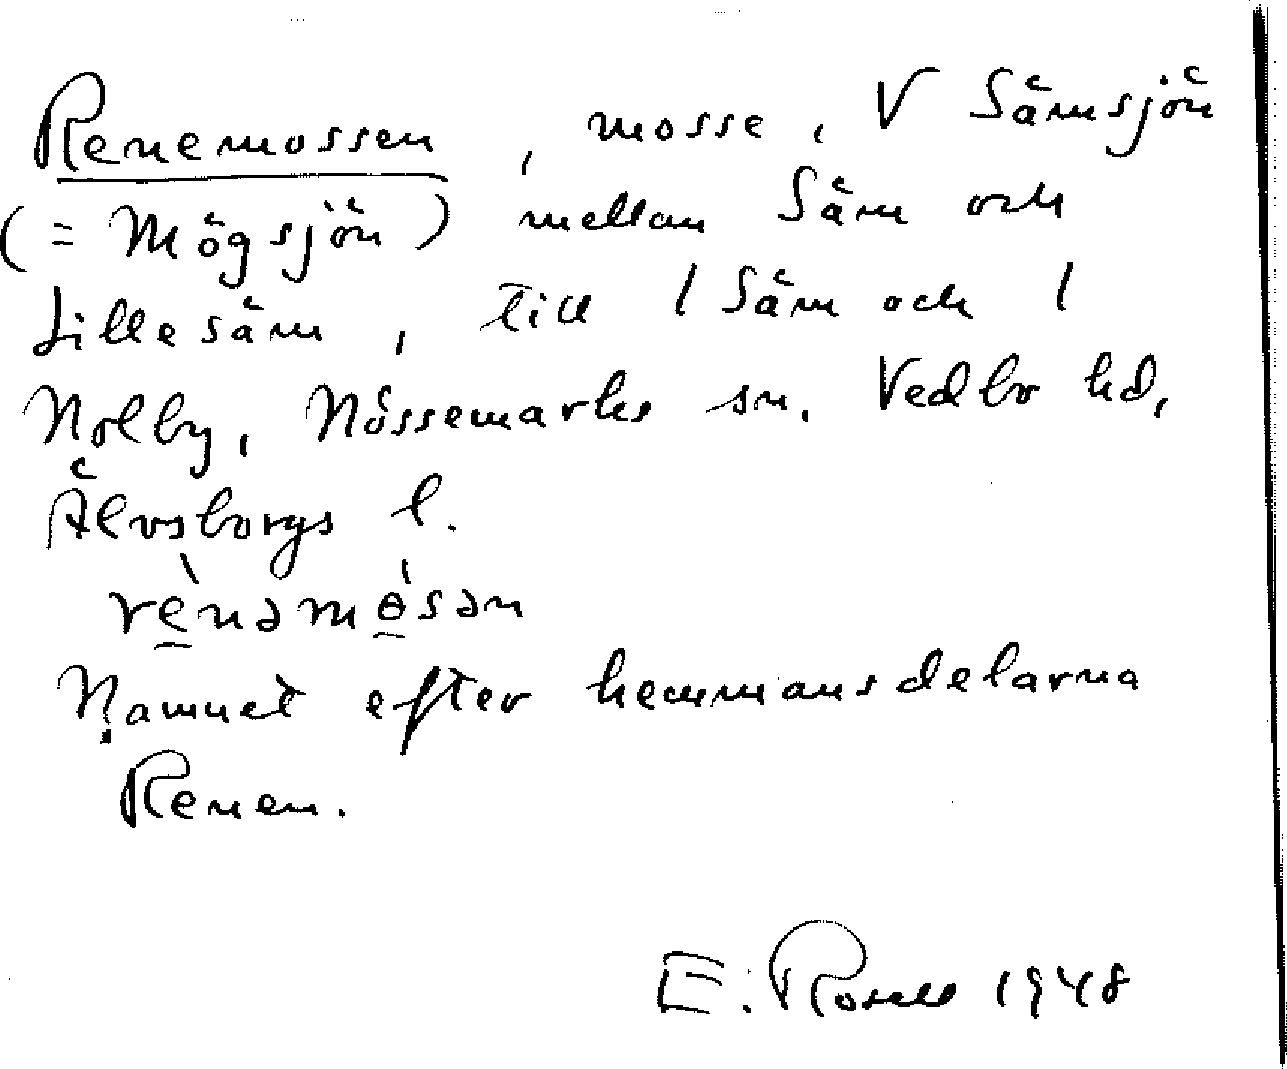 Renemossen, mosse, V Sämsjön
(= Mögsjön) mellan Säm och
Lillesäm, till 1 Säm och 1
Nolby, Nössemarks sn. Vedbo hd,
Älvsborgs l.
rènəmɵ̀sən
Namnet efter hemmansdelarna
Renen.
E. Rosell 1948